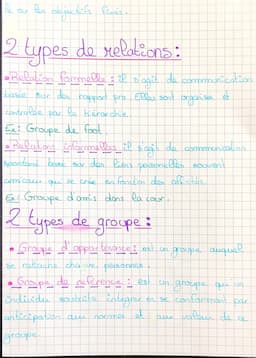 le ou les objectifs fixés.
2 types de relations :
• Relation formelle : il s'agit de communication
basée sur des rapport pro. Elles sont organisé et
contrôlée par la hiérarchie.
Ex : Groupe de foot
• Relations informelles : il s'agit de communication
spontané basé sur des liens personnelles souvent
amicaux qui se crée en fonction des affinités.
Ex : Groupe d'amis dans la cour.
2 types de groupe :
• Groupe d'appartenance : est un groupe auquel
se rattache chaque personnes.
• Groupe de référence : est un groupe qu'un
individu souhaite intégrer en se conformant par
anticipation aux normes et aux valeurs de ce
groupe.